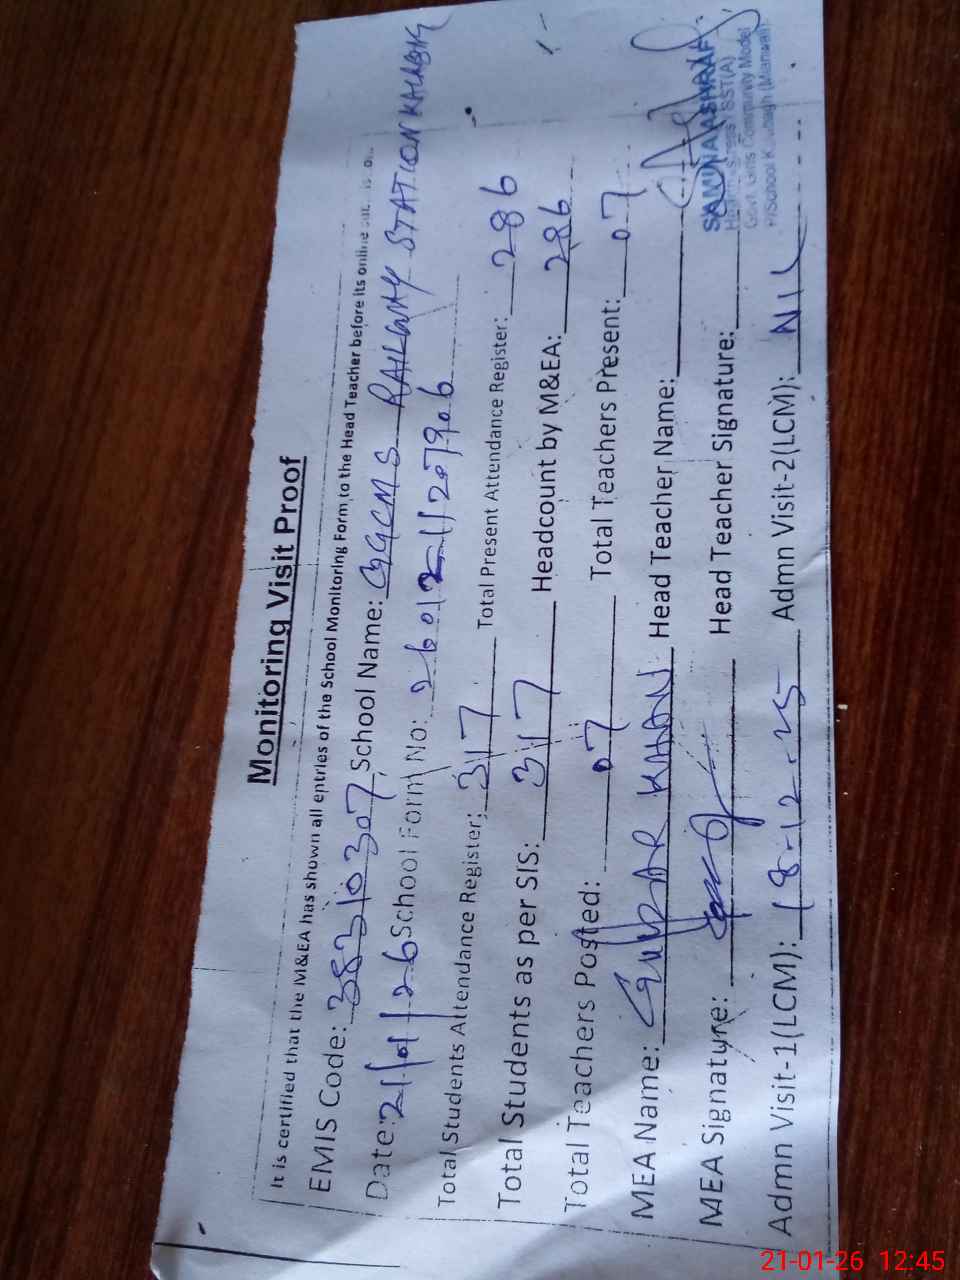 Monitoring Visit Proof
It is certified that the M&EA has shown all entries of the School Monitoring Form to the Head Teacher before its online
EMIS Code: 38310307, School Name: GGCMS RAILWAY STATION KALABGH
Date: 21/01/26 School Form No: 2601211207906
Total Students Attendance Register: 317 Total Present Attendance Register: 286
Total Students as per SIS: 317 Headcount by M&EA: 286
Total Teachers Posted: 07 Total Teachers Present: 07
MEA Name: Gulzar KHAN Head Teacher Name:
MEA Signature: Head Teacher Signature:
Admn Visit-1(LCM): 18-12-25 Admn Visit-2(LCM): NIL
SAMINA ASHRAF
SST(A)
Govt. Girls Community Model
(Mianwali)
21-01-26 12:45